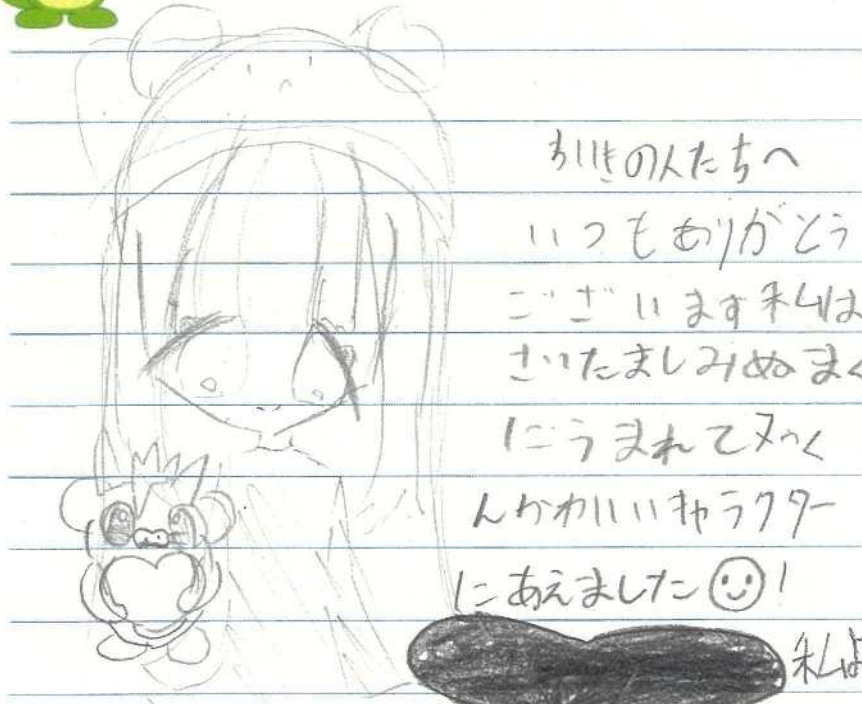 ちいきの人たちへ
いつもありがとう
ございます私は
さいたましみぬまく
にうまれてヌゥく
んかわいいキャラクター
にあえました!
私は